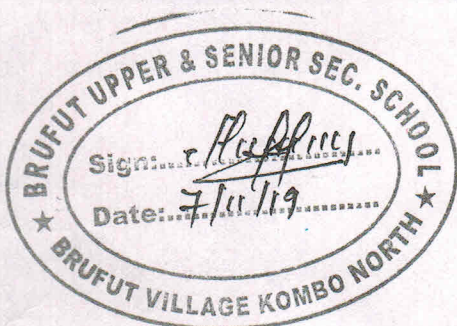 BRUFUT UPPER & SENIOR SEC. SCHOOL
Sign:
Date: 7/11/19
★ BRUFUT VILLAGE KOMBO NORTH ★